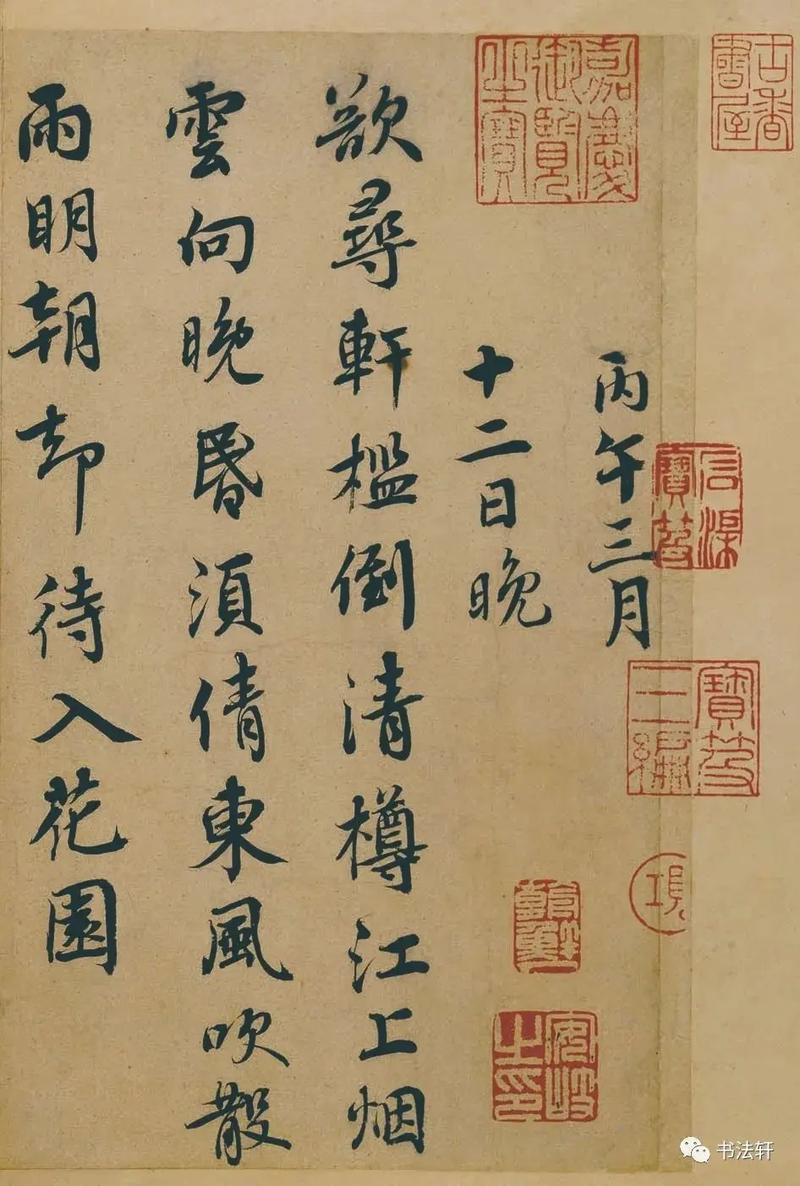 古香書屋
嘉慶御覽之寶
丙午三月
石渠寶笈
寶笈三編
十二日晚
安岐之印
欲尋軒檻倒清樽江上烟
雲向晚昏須倩東風吹散
雨明朝却待入花園
书法轩